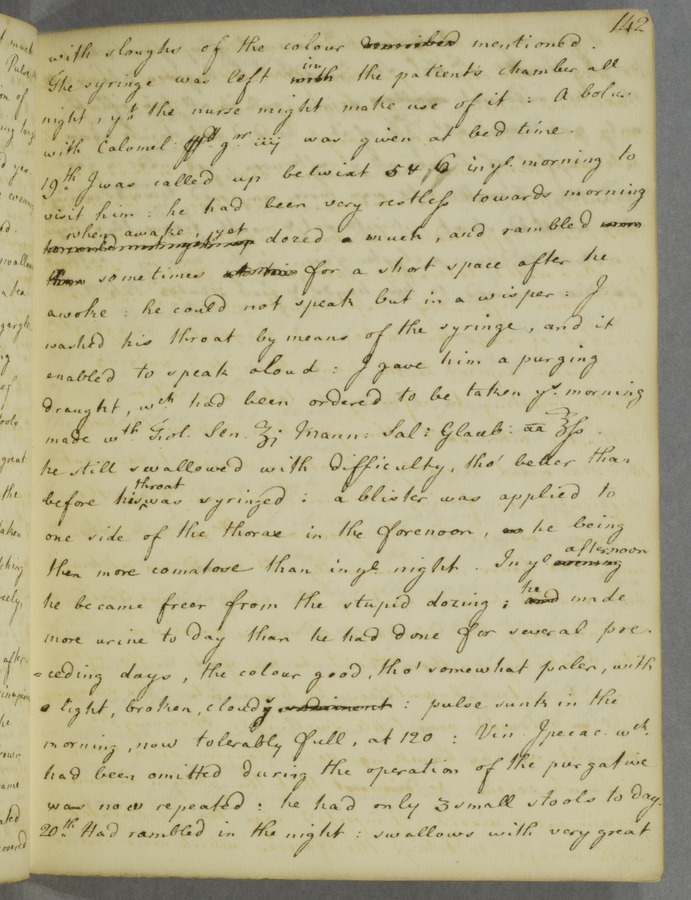 142
with sloughs of the colour described mentioned.
The syringe was left with in the patient's chamber all
night, yt the nurse might make use of it : A bolus
with Calomel gr iiij was given at bed time.
19th I was called up betwixt 5 & 6 in ye morning to
visit him : he had been very restless towards morning
when awake, yet dozed much, and rambled
sometimes for a short space after he
awoke : he could not speak but in a wisper : I
washed his throat by means of the syringe, and it
enabled to speak aloud : I gave him a purging
draught, wch had been ordered to be taken ys morning
made wth Fol. Sen. ʒj Mann: Sal: Glaub: āā ℥ſs.
he still swallowed with difficulty, tho' better than
before his throat was syringed : a blister was applied to
one side of the thorax in the forenoon, he being
then more comatose than in ye night. In ye evening afternoon
he became freer from the stupid dozing ; and he made
more urine to day than he had done for several pre-
=ceding days, the colour good, tho' somewhat paler, with
a light, broken, cloudy sediment : pulse sunk in the
morning, now tolerably full, at 120 : Vin. Ipecac. wch.
had been omitted during the operation of the purgative
was now repeated : he had only 3 small stools to day.
20th Had rambled in the night : swallows with very great